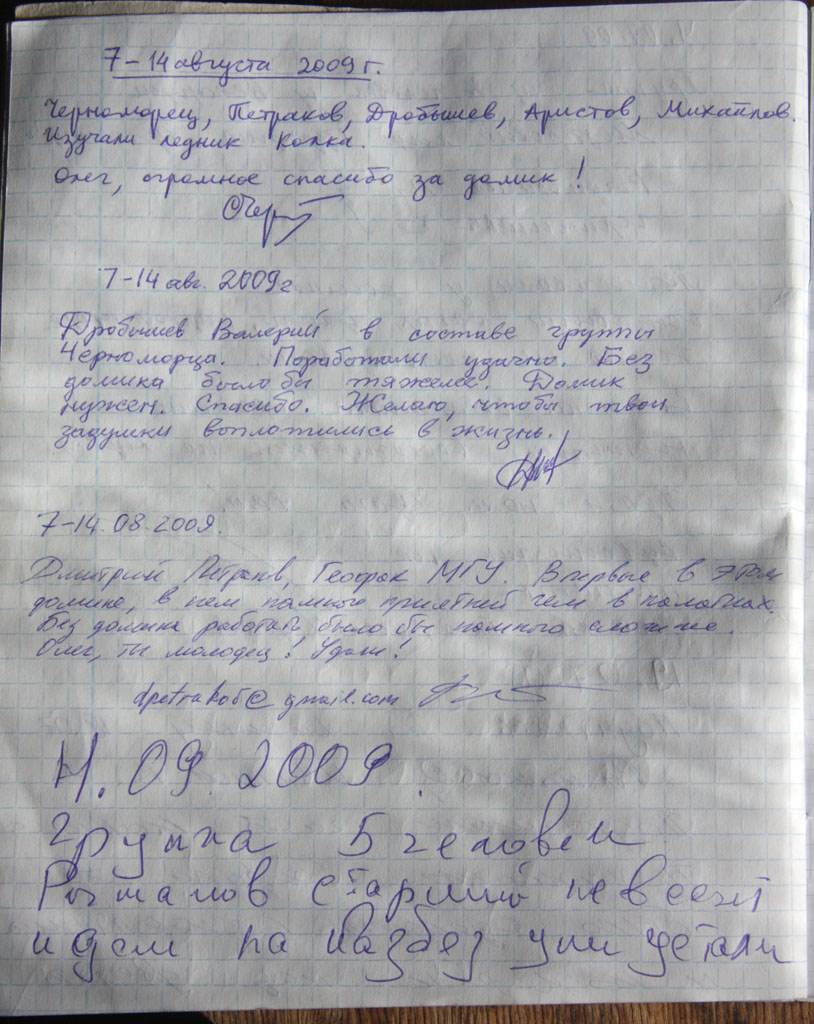 7-14 августа 2009 г.
Черноморец, Петраков, Дробышев, Аристов, Михайлов.
Изучали ледник Колка.
Олег, огромное спасибо за домик!
7-14 авг. 2009г
Дробышев Валерий в составе группы
Черноморца. Поработали удачно. Без
домика было бы тяжелее. Домик
нужен. Спасибо. Желаю, чтобы твои
задумки воплотились в жизнь.
7-14.08.2009.
Дмитрий Петраков, Геофак МГУ. Впервые в этом
домике, в нем намного приятней чем в палатках.
Без домика работать было бы намного сложнее.
Олег, ты молодец! Удачи!
dpetrakov@gmail.com
09.2009.
группа 5 человек
старший
идем на Казбек